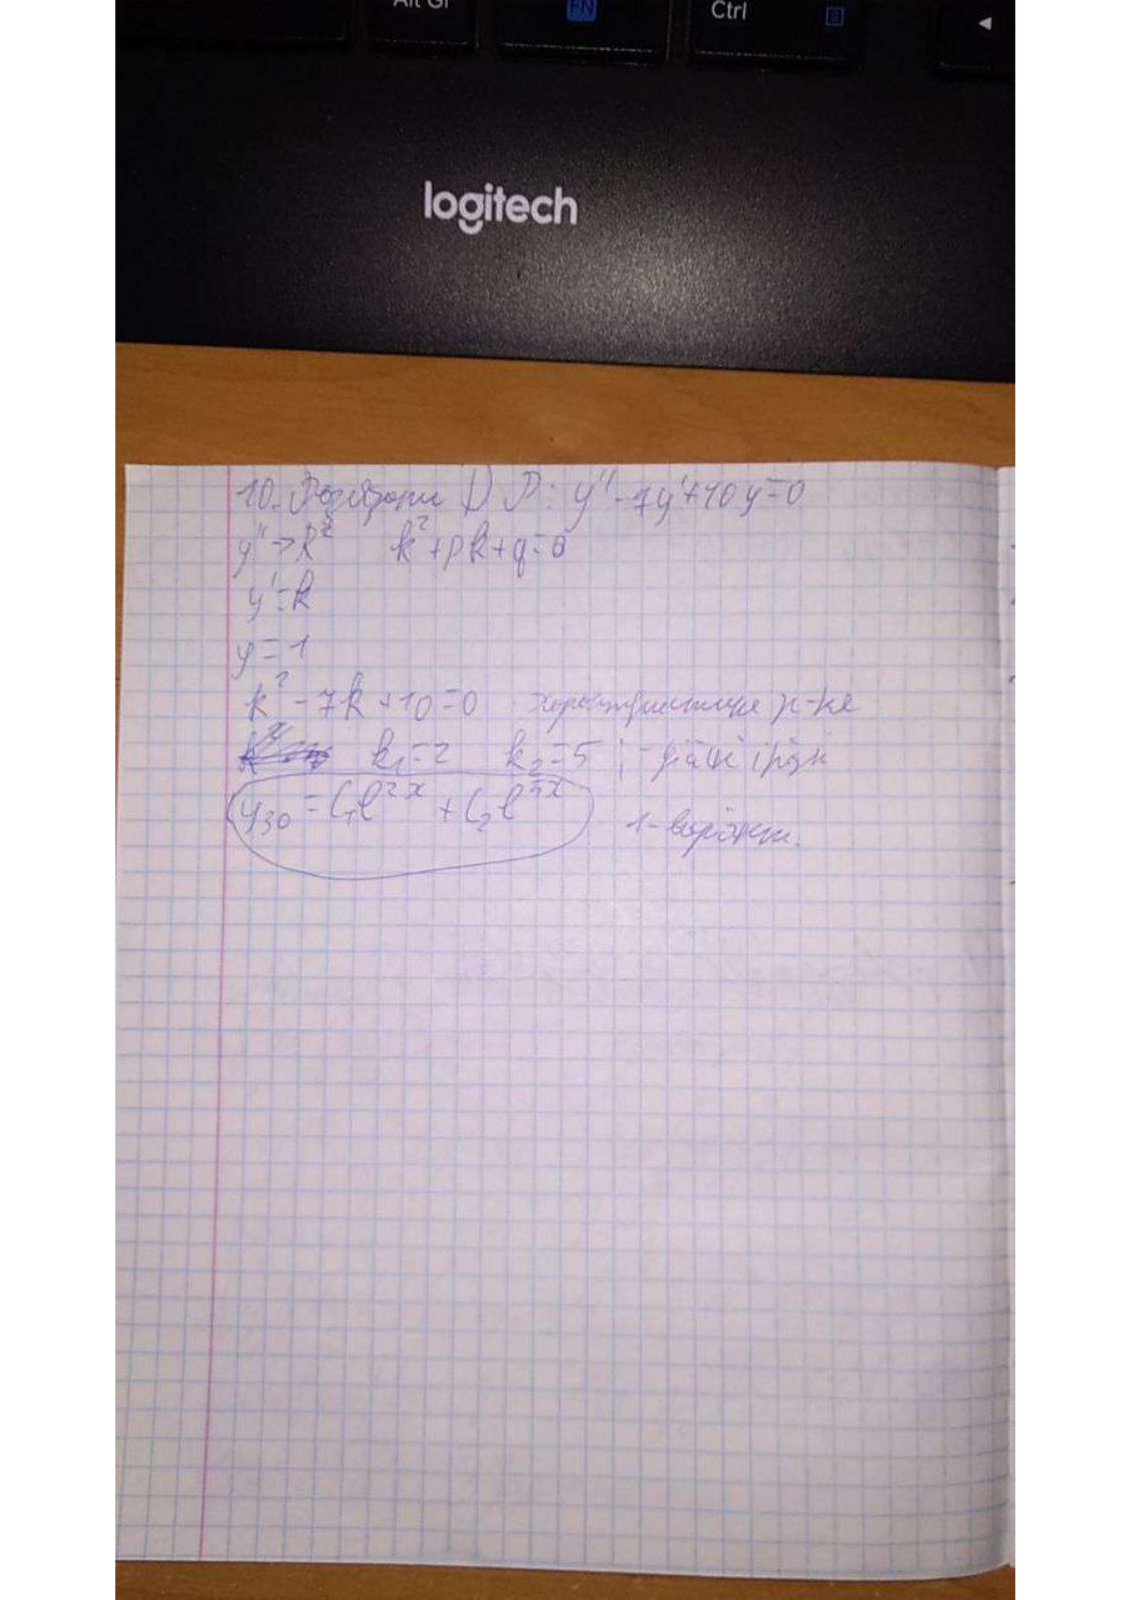 Alt Gr FN Ctrl
logitech
10. Розв'язати ДР: y'' - 7y' + 10y = 0
y'' → k² k² + pk + q = 0
y' = k
y = 1
k² - 7k + 10 = 0 характеристичне р-не
k₁ = 2 k₂ = 5 ; - дійсні і різні
y₃₀ = C₁e²ˣ + C₂e⁵ˣ
1-варіант.